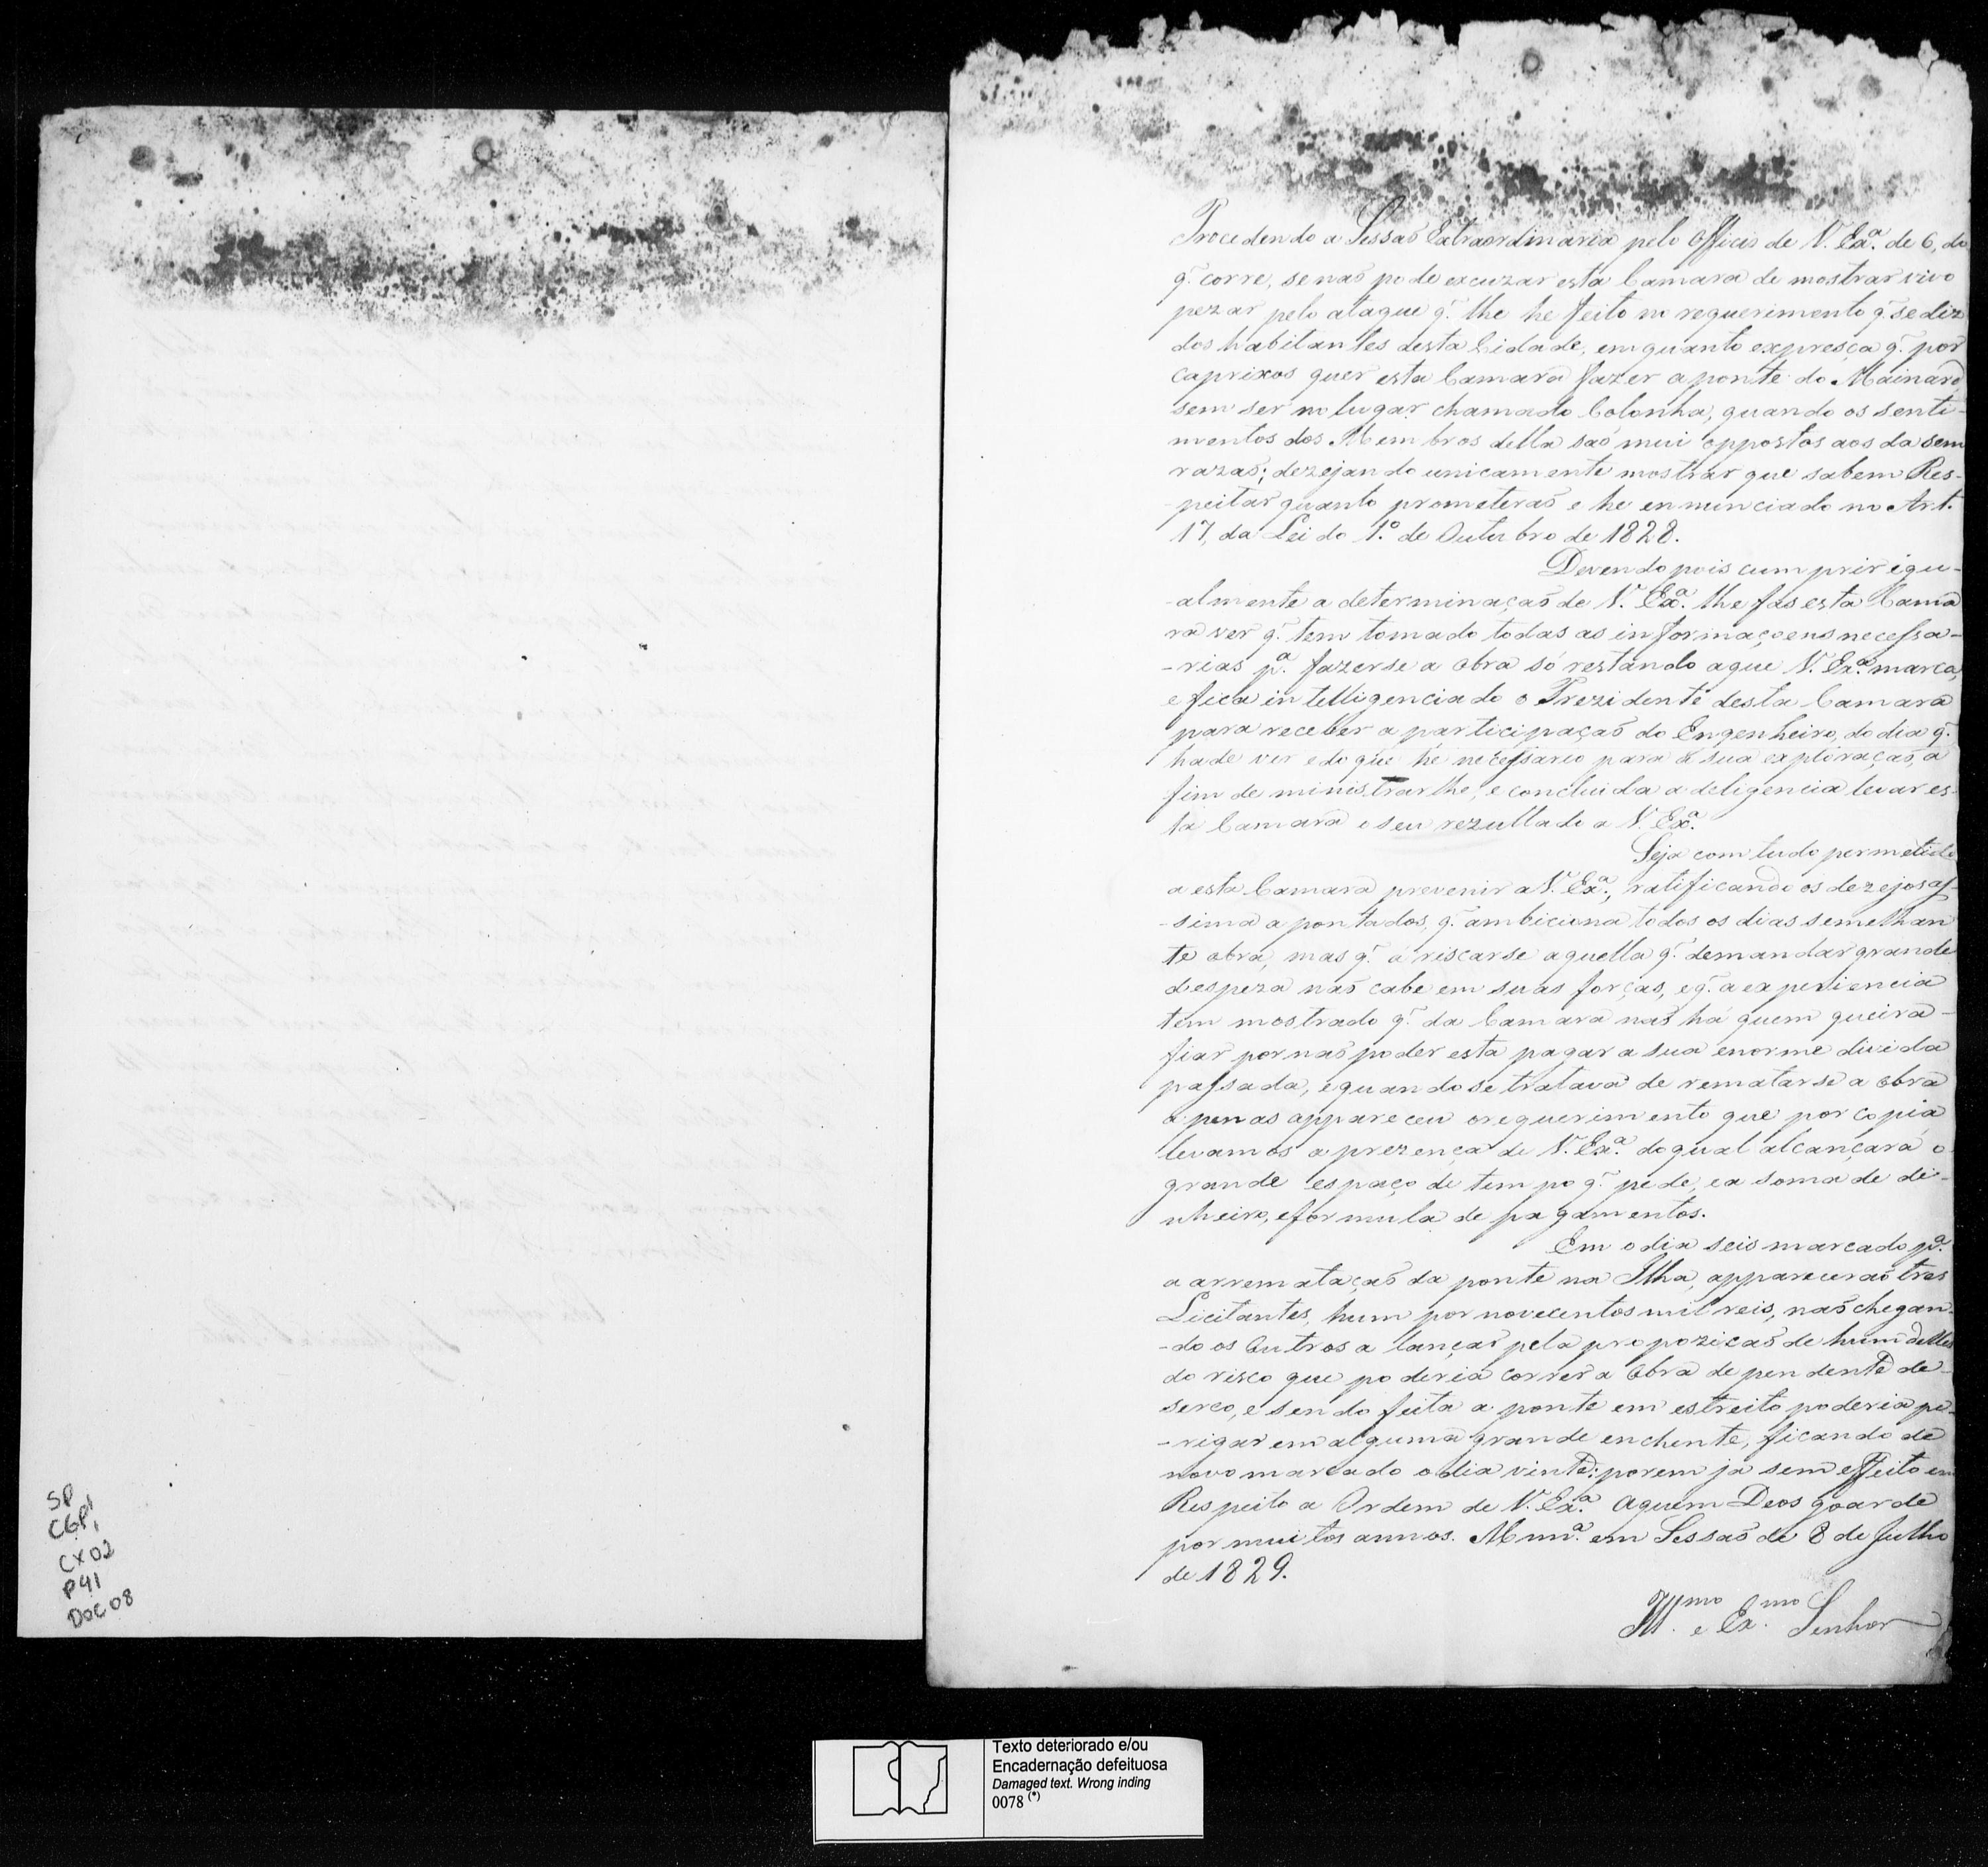 SP
CGP1
CX02
P41
DOC08
Procedendo a Sessaõ Extraordinaria pelo Officio de V. Exª. de 6, do
q̃. corre, se naõ pode excuzar esta Camara de mostrar vivo
pezar pelo ataque q̃. lhe he feito no requerimento q̃. se diz
dos habitantes desta Cidade, emquanto expresça q̃. por
caprixos quer esta Camara fazer a ponte do Mainard,
sem ser no lugar chamado Colonha, quando os senti-
mentos dos Membros della saõ mui oppostos aos da sem
razaõ; dezejando unicamente mostrar que sabem Res-
peitar quanto prometeraõ e he enunciado no Art.
17, da Lei do 1.º de Outubro de 1828.
Devendo pois cumprir igu-
-almente a determinaçaõ de V. Exª. lhe fas esta Cama
ra ver q̃. tem tomado todas as informaçoens necessa-
-rias pª. fazerse a obra só restando a que V. Exª. marca,
e fica intelligenciado o Prezidente desta Camara
para receber a participaçaõ do Engenheiro, do dia q̃.
hade vir e do que he necessario para a sua exploraçaõ, a
fim de ministrarlhe, e concluida a deligencia levar es-
ta Camara o seu rezultado a V. Exª.
Seja com tudo permetido
a esta Camara prevenir a V. Exª., ratificando os dezejos as-
-sima apontados, q̃. ambiciona todos os dias semelhan
te obra, mas q̃. á riscarse aquella q̃. demandar grande
despeza naõ cabe em suas forças, e q̃. a experiencia
tem mostrado q̃. da Camara naõ há quem queira-
fiar por naõ poder esta pagar a sua enorme divida
passada, e quando se tratava de rematarse a obra
apenas appareceu o requerimento que por copia
levamos a prezença de V. Exª. do qual alcançará o
grande espaço de tempo q̃. pede, e a soma de di-
nheiro, e formula de pagamentos.
Em o dia seis marcado pª.
a arremataçaõ da ponte na Ilha, appareceraõ tres
Licitantes, hum por novecentos mil reis, naõ chegan-
-do os outros a lançar pela propoziçaõ de hum delles
do risco que poderia correr a obra dependente de-
serco, e sendo feita a ponte em estreito poderia pe-
-rigar em alguma grande enchente, ficando de
novo marcado o dia vinte: porem já sem effeito em
Respeito a Ordem de V. Exª. a quem Deos goarde
por muitos annos. Marnnª. em Sessaõ de 8 de Julho
de 1829.
Illmo. e Exmo. Senhor
Texto deteriorado e/ou
Encadernação defeituosa
Damaged text. Wrong inding
0078 (*)